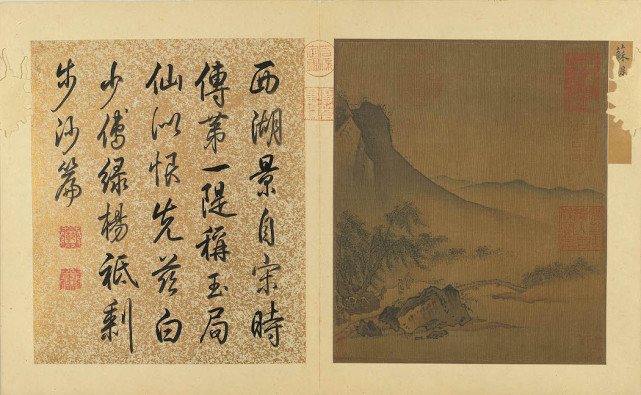 西湖景自宋時
傳第一隄稱玉局
仙似恨先茲白
少傅綠楊祗剩
步沙篇
蘇